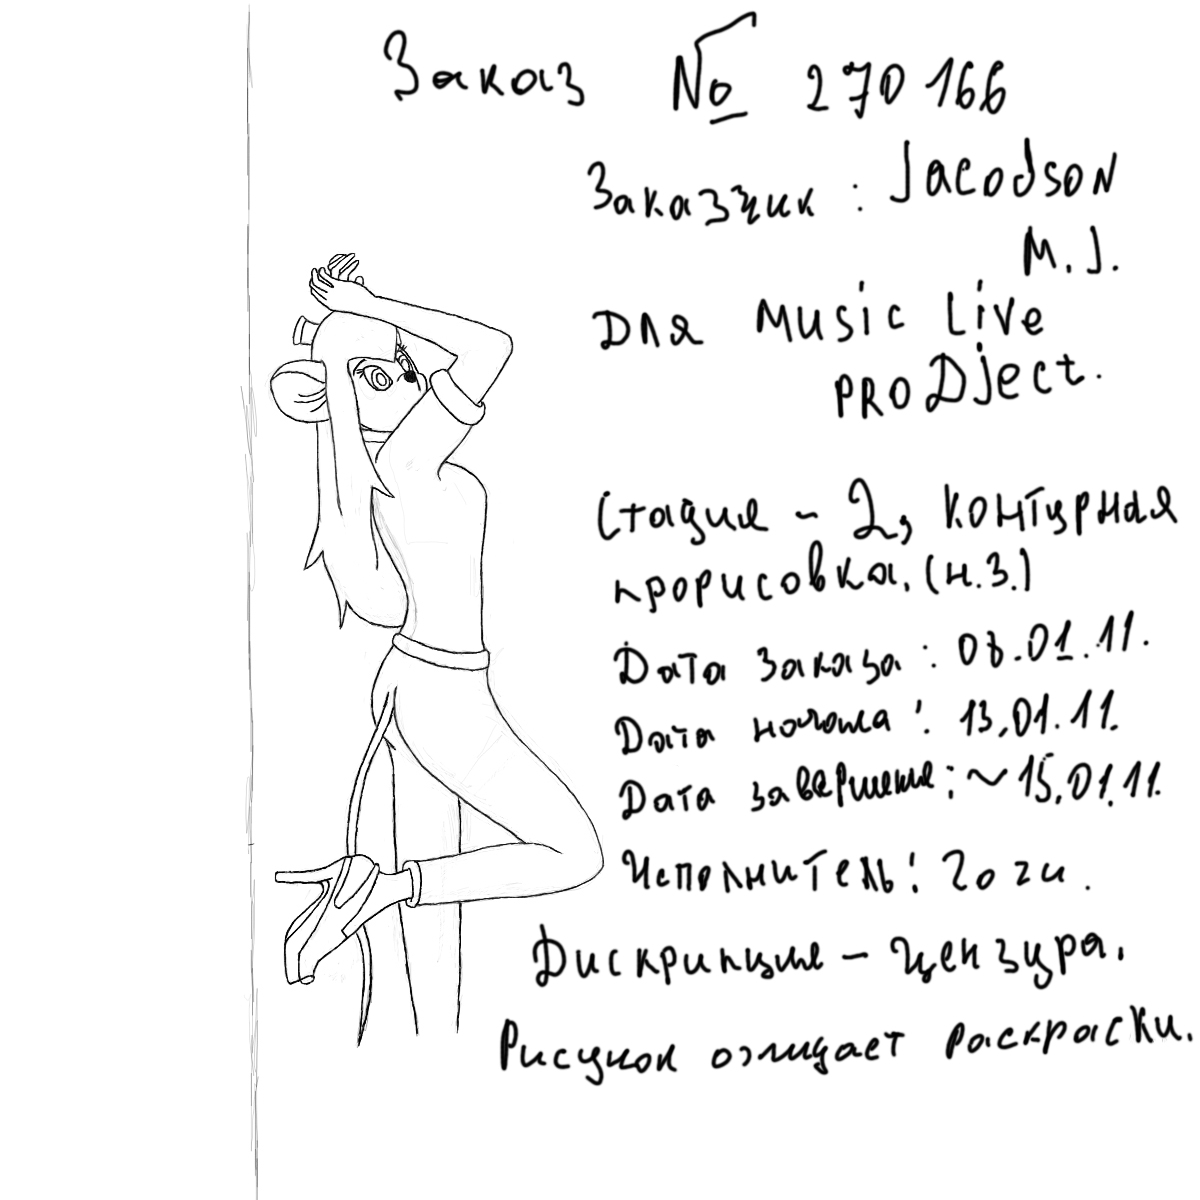 Заказ № 270166
Заказчик : Jacodson
M. J.
Для Music Live
PRODject.
Стадия - 2, контурная
прорисовка. (н.з.)
Дата заказа : 08.01.11.
Дата начала : 13.01.11.
Дата завершения : ~15.01.11.
Исполнитель : Гоги.
Дискрипция - цензура.
Рисунок ожидает раскраски.